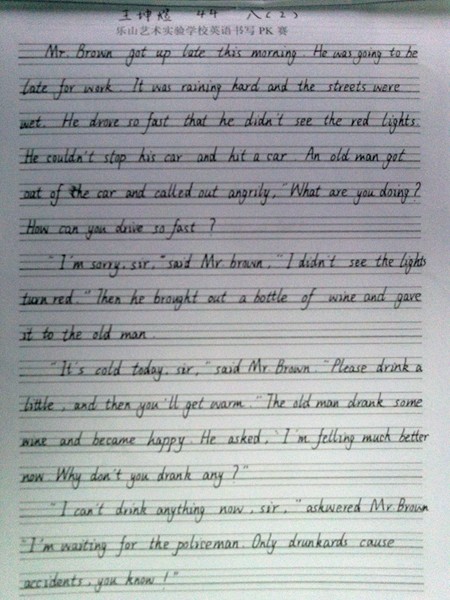 王坤煜 44 八(2)
乐山艺术实验学校英语书写PK 赛
Mr. Brown got up late this morning. He was going to be
late for work. It was raining hard and the streets were
wet. He drove so fast that he didn't see the red lights.
He couldn't stop his car and hit a car. An old man got
out of the car and called out angrily, "What are you doing?
How can you drive so fast ?
"I'm sorry, sir," said Mr. brown, "I didn't see the lights
turn red." Then he brought out a bottle of wine and gave
it to the old man.
"It's cold today, sir," said Mr. Brown. "Please drink a
little, and then you'll get warm." The old man drank some
wine and became happy. He asked, "I'm felling much better
now. Why don't you drank any ?"
"I can't drink anything now, sir," askwered Mr. Brown
"I'm waiting for the policeman. Only drunkards cause
accidents, you know !"